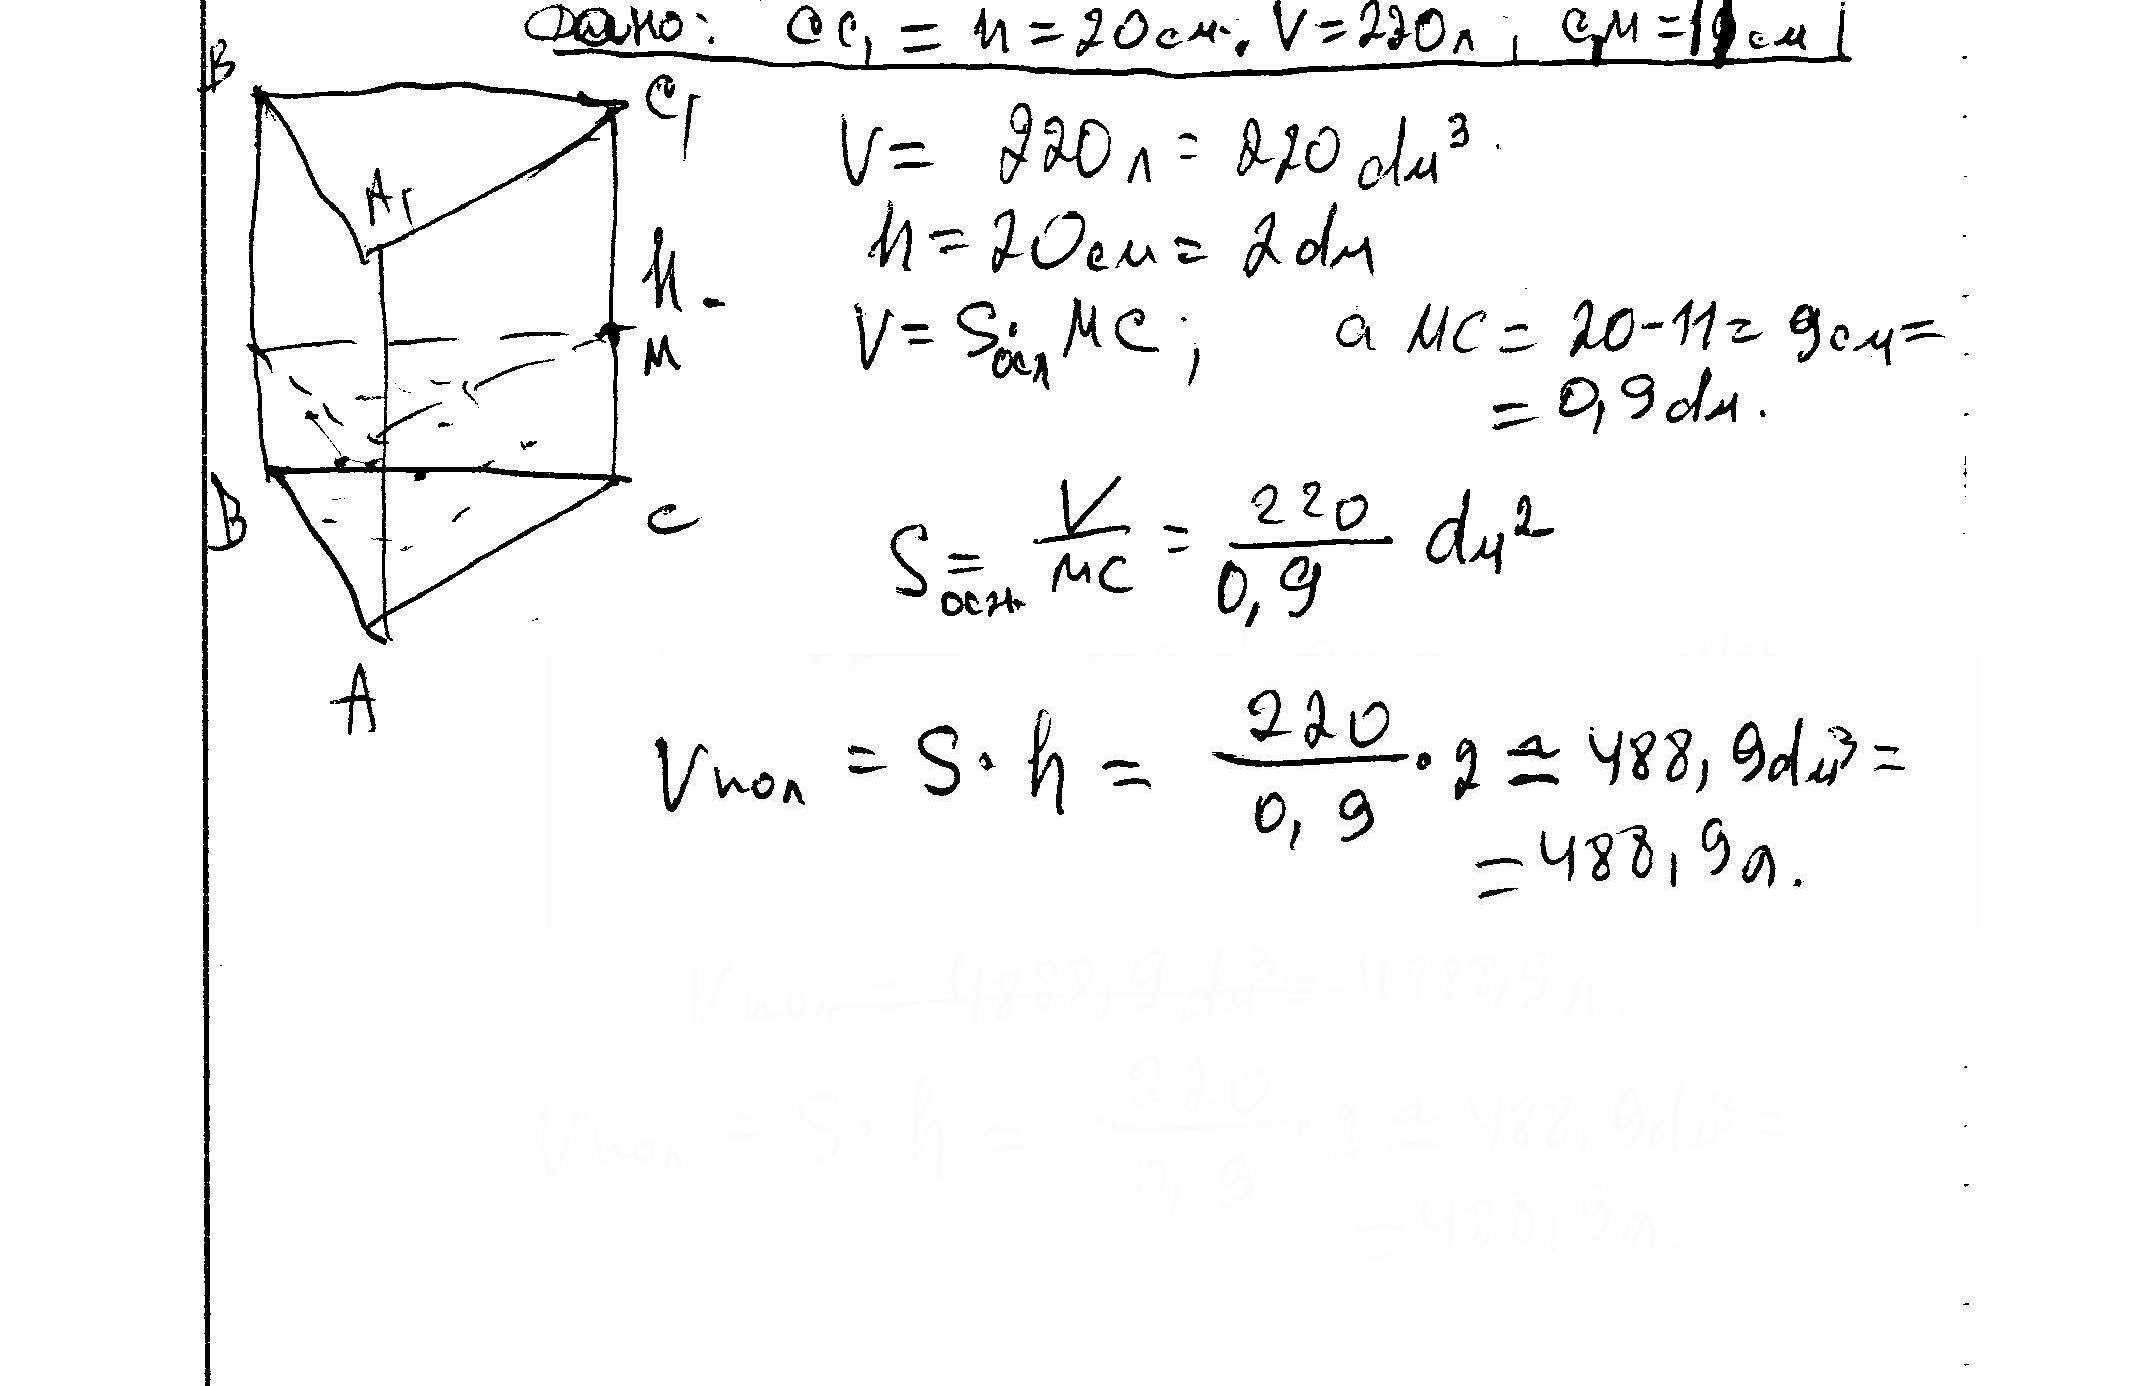 Дано: CC₁ = h = 20 см. V = 220 л, C₁M = 11 см
B
C₁
A₁
V = 220 л = 220 дм³.
h = 20 см = 2 дм
h -
V = Sосн · MC; а MC = 20 - 11 = 9 см =
M
= 0,9 дм.
B
C
Sосн. = V/MC = 220/0,9 дм²
A
Vпол = S · h = 220/0,9 · 2 ≈ 488,9 дм³ =
= 488,9 л.
Vпол = 4888,9 дм³ = 4888,9 л.
Vпол = S · h = 220/0,9 · 2 ≈ 488,9 дм³ =
= 488,9 л.